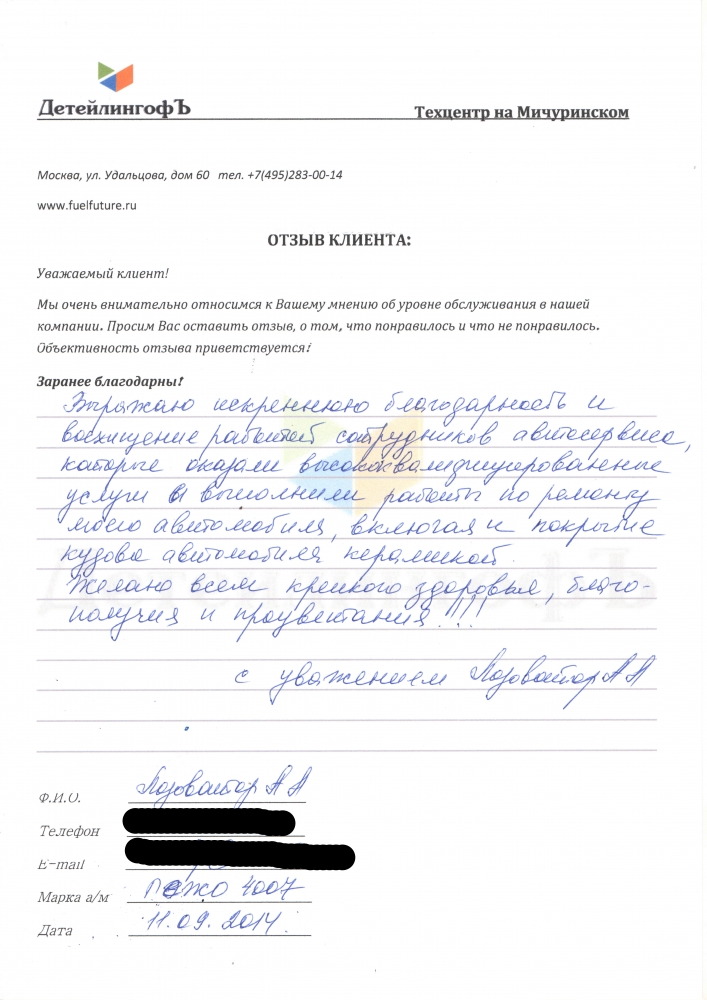 ДетейлингофЪ
Техцентр на Мичуринском
Москва, ул. Удальцова, дом 60 тел. +7(495)283-00-14
www.fuelfuture.ru
ОТЗЫВ КЛИЕНТА:
Уважаемый клиент!
Мы очень внимательно относимся к Вашему мнению об уровне обслуживания в нашей
компании. Просим Вас оставить отзыв, о том, что понравилось и что не понравилось.
Объективность отзыва приветствуется!
Заранее благодарны!
Выражаю искреннюю благодарность и
восхищение работой сотрудников автосервиса,
которые оказали высококвалифицированные
услуги и выполнили работы по ремонту
моего автомобиля, включая и покрытие
кузова автомобиля керамикой.
Желаю всем крепкого здоровья, благо-
получия и процветания!!!
с уважением Лозоватор А А
Ф.И.О. Лозоватор А А
Телефон
E-mail
Марка а/м Пежо 4007
Дата 11.09.2014